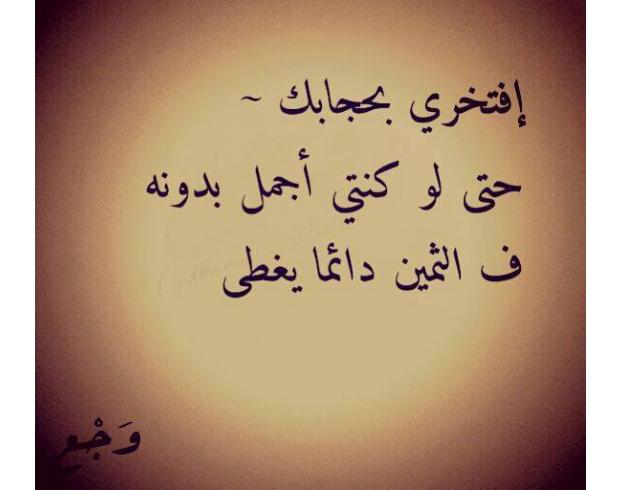 إفتخري بحجابك ~
حتى لو كنتي أجمل بدونه
ف الثمين دائما يغطى
وَجْع